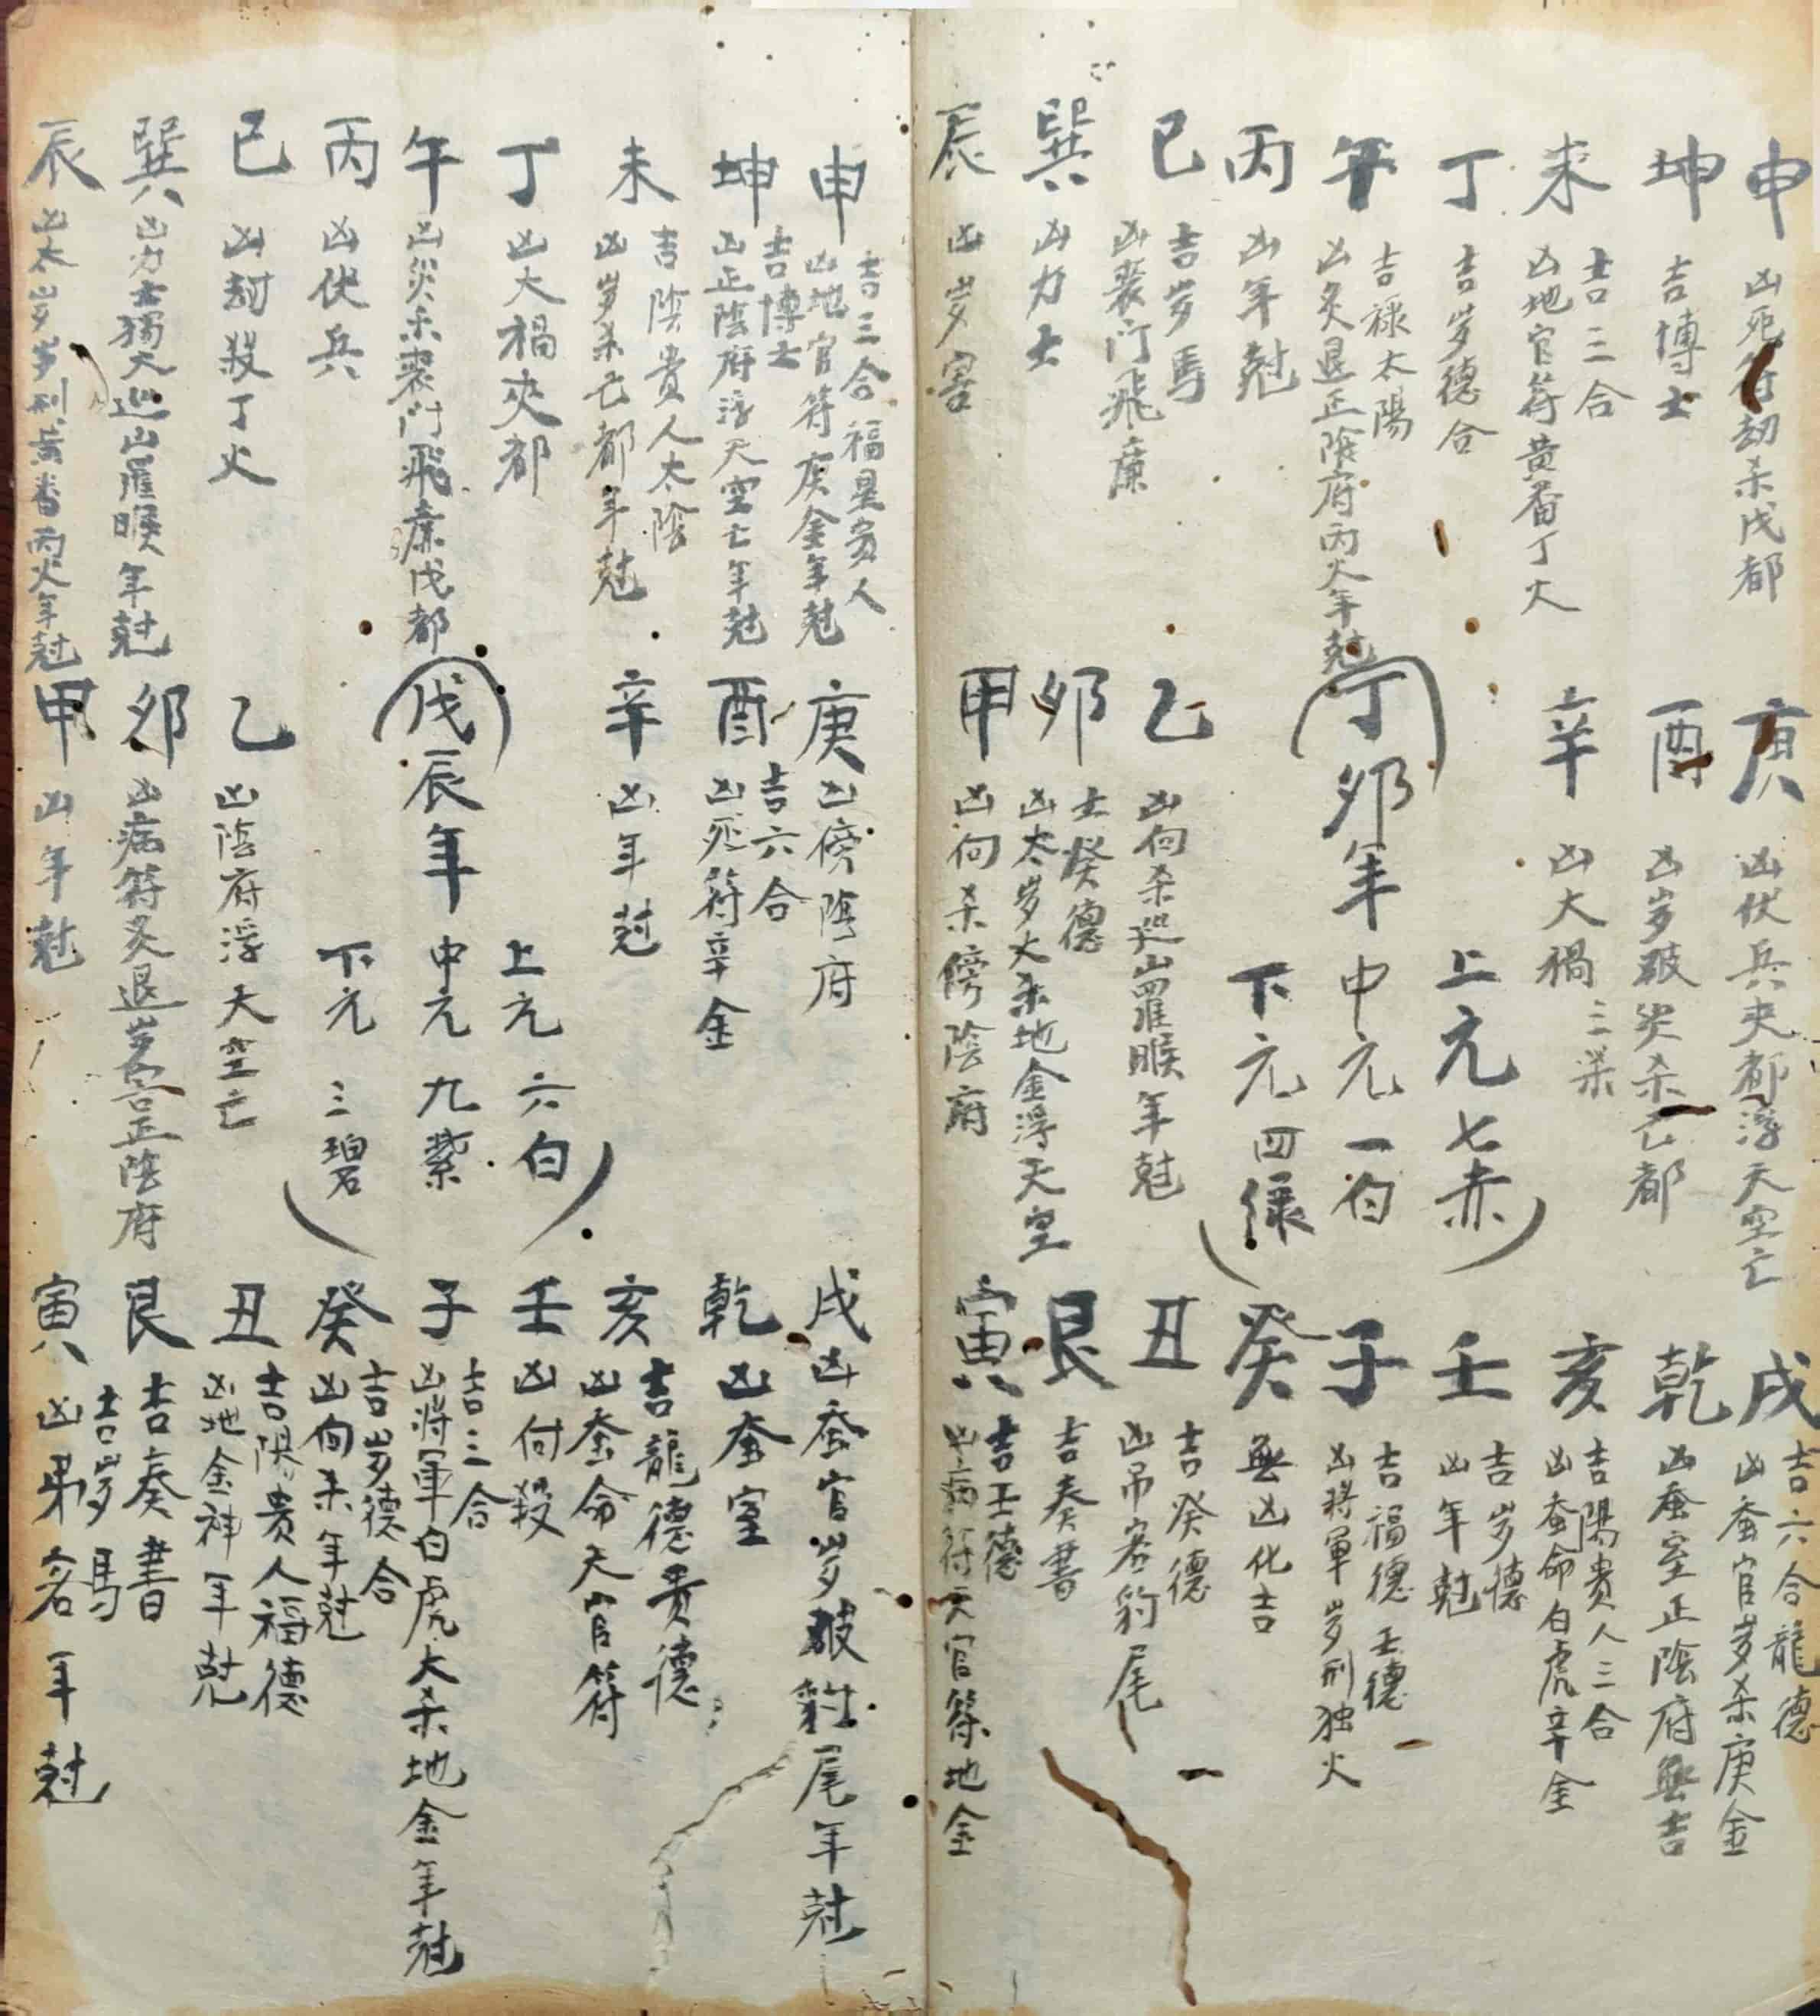 申
凶死符劫杀戊都
坤
吉博士
未
吉三合
凶地官符黄畨丁火
丁
吉岁德合
午
吉禄太陽
凶灸退正陰府丙火年尅
丙
凶年尅
巳
吉岁馬
凶丧门飛廉
巽
凶力士
辰
凶岁害
庚
凶伏兵夹都浮天空亡
酉
凶岁破灾杀亡都
辛
凶大祸
三杀
(丁卯年
上元七赤
中元一白
下元四禄)
乙
凶向杀巡山罹睺年尅
卯
士癸德
凶太岁大杀地金浮天空
甲
凶向杀傍陰府
戌
吉六合龍德
凶蚕官岁杀庚金
乾
凶蚕室正陰府無吉
亥
吉陽贵人三合
凶蚕命白虎辛金
壬
吉岁德
凶年尅
子
吉福德壬德
凶将軍岁刑独火
癸
無凶化吉
丑
吉癸德
凶吊客豹尾
艮
吉奏書
寅
吉壬德
凶病符天官符地金
申
吉三合福星贵人
凶地官符庚金年尅
坤
吉博士
凶正陰府浮天空亡年尅
未
吉陰貴人太陰
凶岁杀亡都年尅
丁
凶大禍夾都
午
凶災杀丧门飛廉戊都
丙
凶伏兵
巳
凶刼殺丁火
巽
凶力士獨火巡山羅睺年尅
辰
凶太岁岁刑黄畨丙火年尅
庚
凶傍陰府
酉
吉六合
凶死符辛金
辛
凶年尅
(戊)辰年
上元六白
中元九紫
下元三碧
乙
凶陰府浮天空亡
卯
凶病符灸退岁害正陰府
甲
凶年尅
戌
凶蚕官岁破豹尾年尅
乾
凶蚕室
亥
吉龍德贵德
凶蚕命天官符
壬
凶向殺
子
吉三合
凶將軍白虎大杀地金年尅
癸
吉岁德合
凶向杀年尅
丑
吉陽贵人福德
凶地金神年尅
艮
吉奏書
寅
吉岁馬
凶弔客年尅